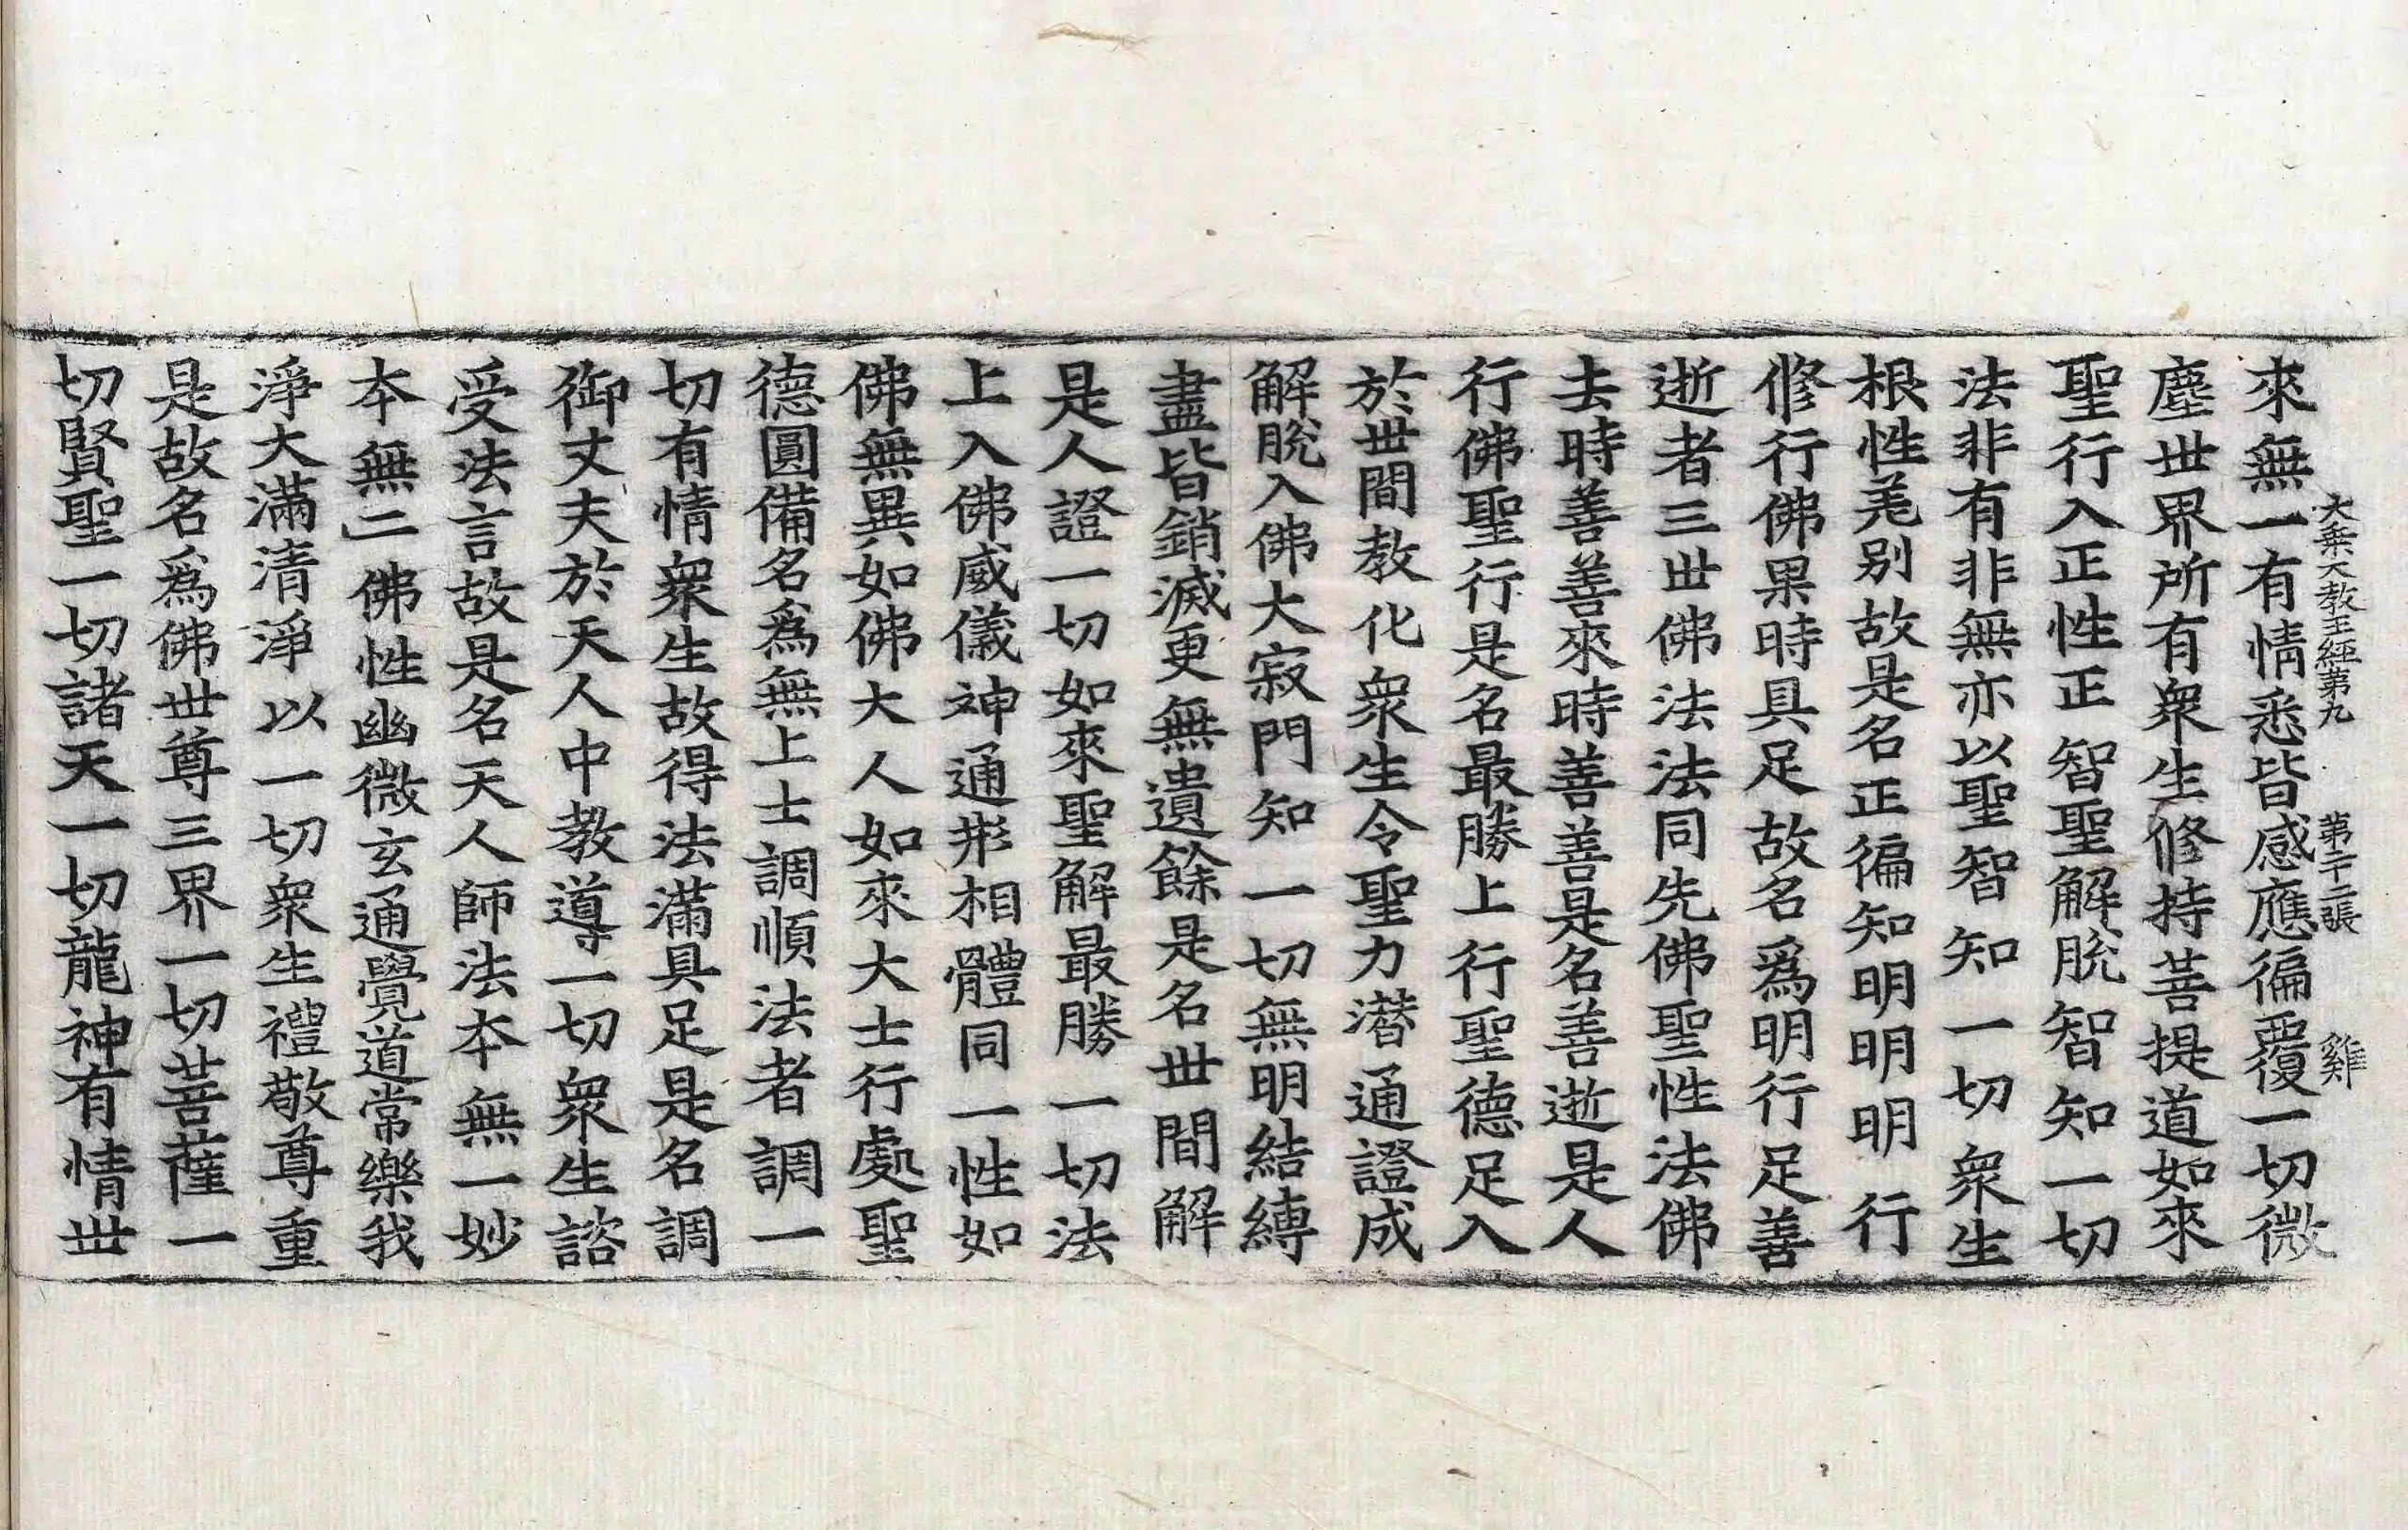 大乗大教王經第九 第二十二張 雞
來無一有情悉皆感應徧覆一切微
塵世界所有衆生修持菩提道如來
聖行入正性正智聖解脫智知一切
法非有非無亦以聖智知一切衆生
根性差别故是名正徧知明明明行
修行佛果時具足故名爲明行足善
逝者三世佛法法同先佛聖性法佛
去時善善來時善善是名善逝是人
行佛聖行是名最勝上行聖德足入
於世間教化衆生令聖力潜通證成
解脫入佛大寂門知一切無明結縛
盡皆銷滅更無遺餘是名世間解
是人證一切如來聖解最勝一切法
上入佛威儀神通形相體同一性如
佛無異如佛大人如來大士行處聖
德圓備名爲無上士調順法者調一
切有情衆生故得法滿具足是名調
御丈夫於天人中教導一切衆生諮
受法言故是名天人師法本無一妙
本無二佛性幽微玄通覺道常樂我
淨大滿清淨以一切衆生禮敬尊重
是故名爲佛世尊三界一切菩薩一
切賢聖一切諸天一切龍神有情世